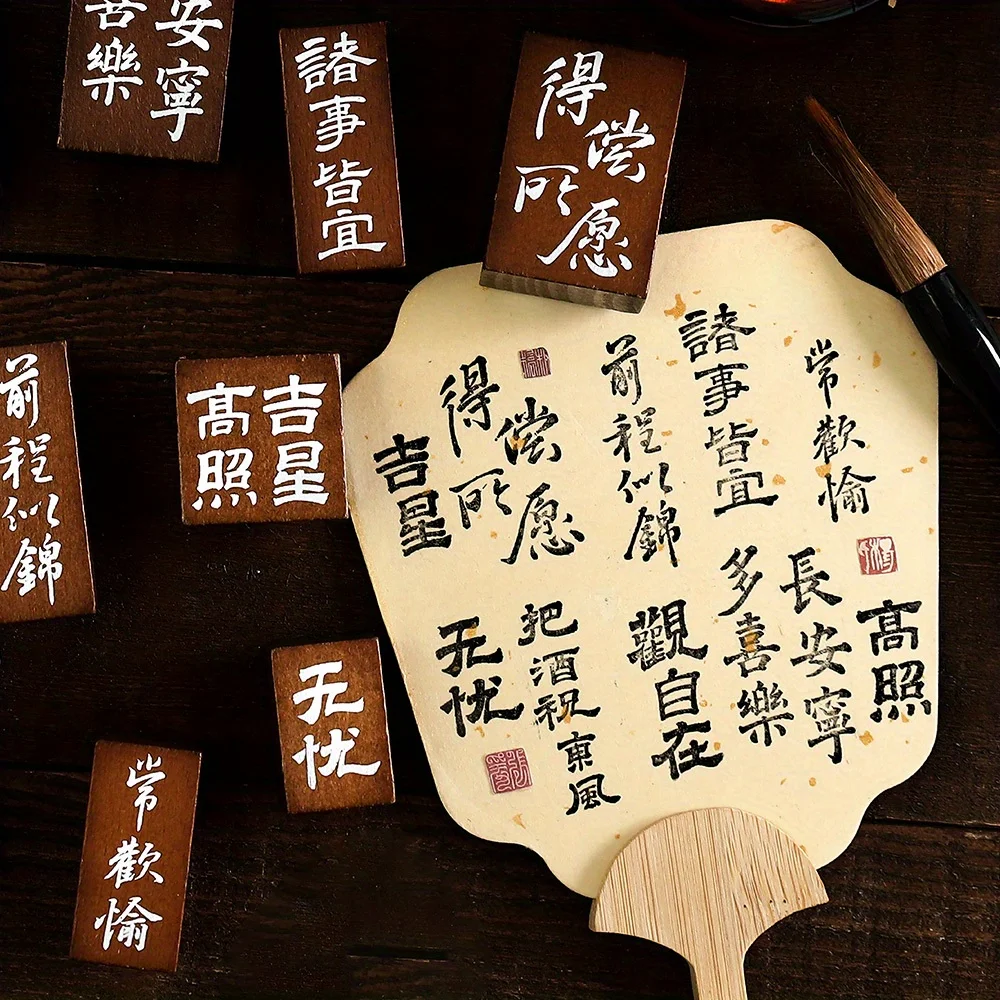 安寧
喜樂
諸事皆宜
得偿
所愿
前程似錦
吉星
高照
无忧
常歡愉
常歡愉
諸事皆宜
前程似錦
得偿
所愿
吉星
高照
長安寧
多喜樂
觀自在
把酒祝東風
无忧